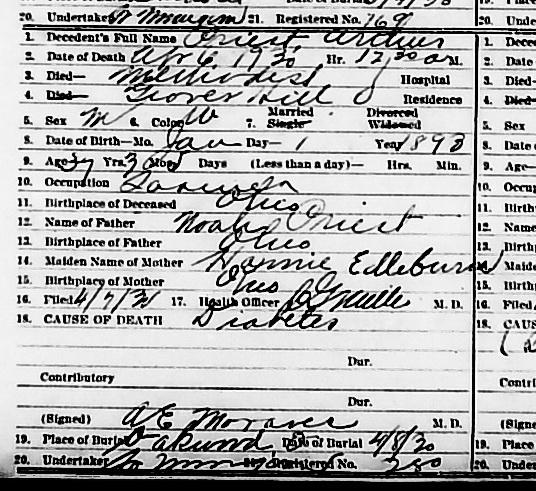 20. Undertaker 21. Registered No. 169 20. Unde
1. Decedent's Full Name Priest, Arthur 1. Dece
2. Date of Death Apr 6, 1930 Hr. 12 30 a M. 2. Date
3. Died— Methodist Hospital 3. Died—
4. Died— Grover Hill Residence 4. Died—
5. Sex M 6. Color W 7. Married Single Divorced Widowed 5. Sex
8. Date of Birth—Mo. Jan Day— 1 Year 1893 8. Date
9. Age Yrs. 3 Mos. Days (Less than a day)— Hrs. Min. 9. Age—
10. Occupation 10. Occup
11. Birthplace of Deceased Ohio 11. Birth
12. Name of Father Noah Priest 12. Name
13. Birthplace of Father Ohio 13. Birthp
14. Maiden Name of Mother Edleburn 14. Maide
15. Birthplace of Mother Ohio 15. Birth
16. Filed 4/7/30 17. Health Officer M. D. 16. Filed
18. CAUSE OF DEATH Diabetes 18. CAUS
Dur.
Contributory Contri
Dur.
(Signed) A E M. D. (Signe
19. Place of Burial Oakwood O Date of Burial 4/8/30 19. Place
20. Undertaker 21. Registered No. 280 20. Under